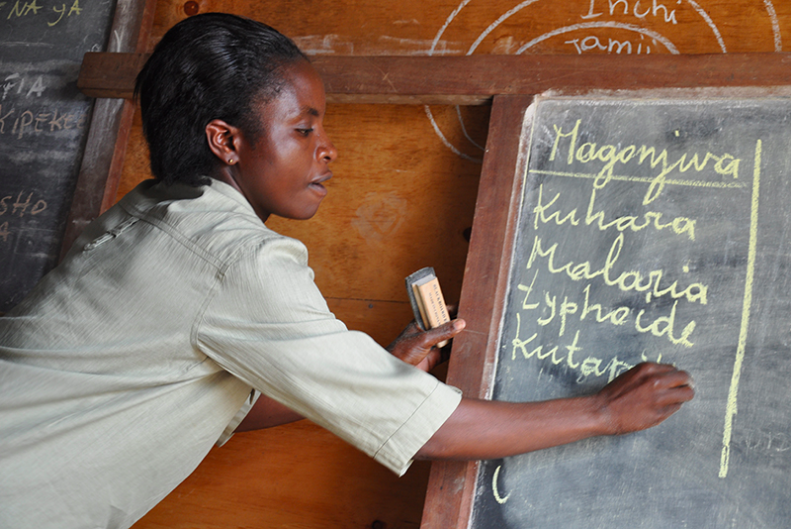 NA YA
KIPEKE
SHO
Inchi
Tamu
Magonjwa
Kuhara
Malaria
typhoide